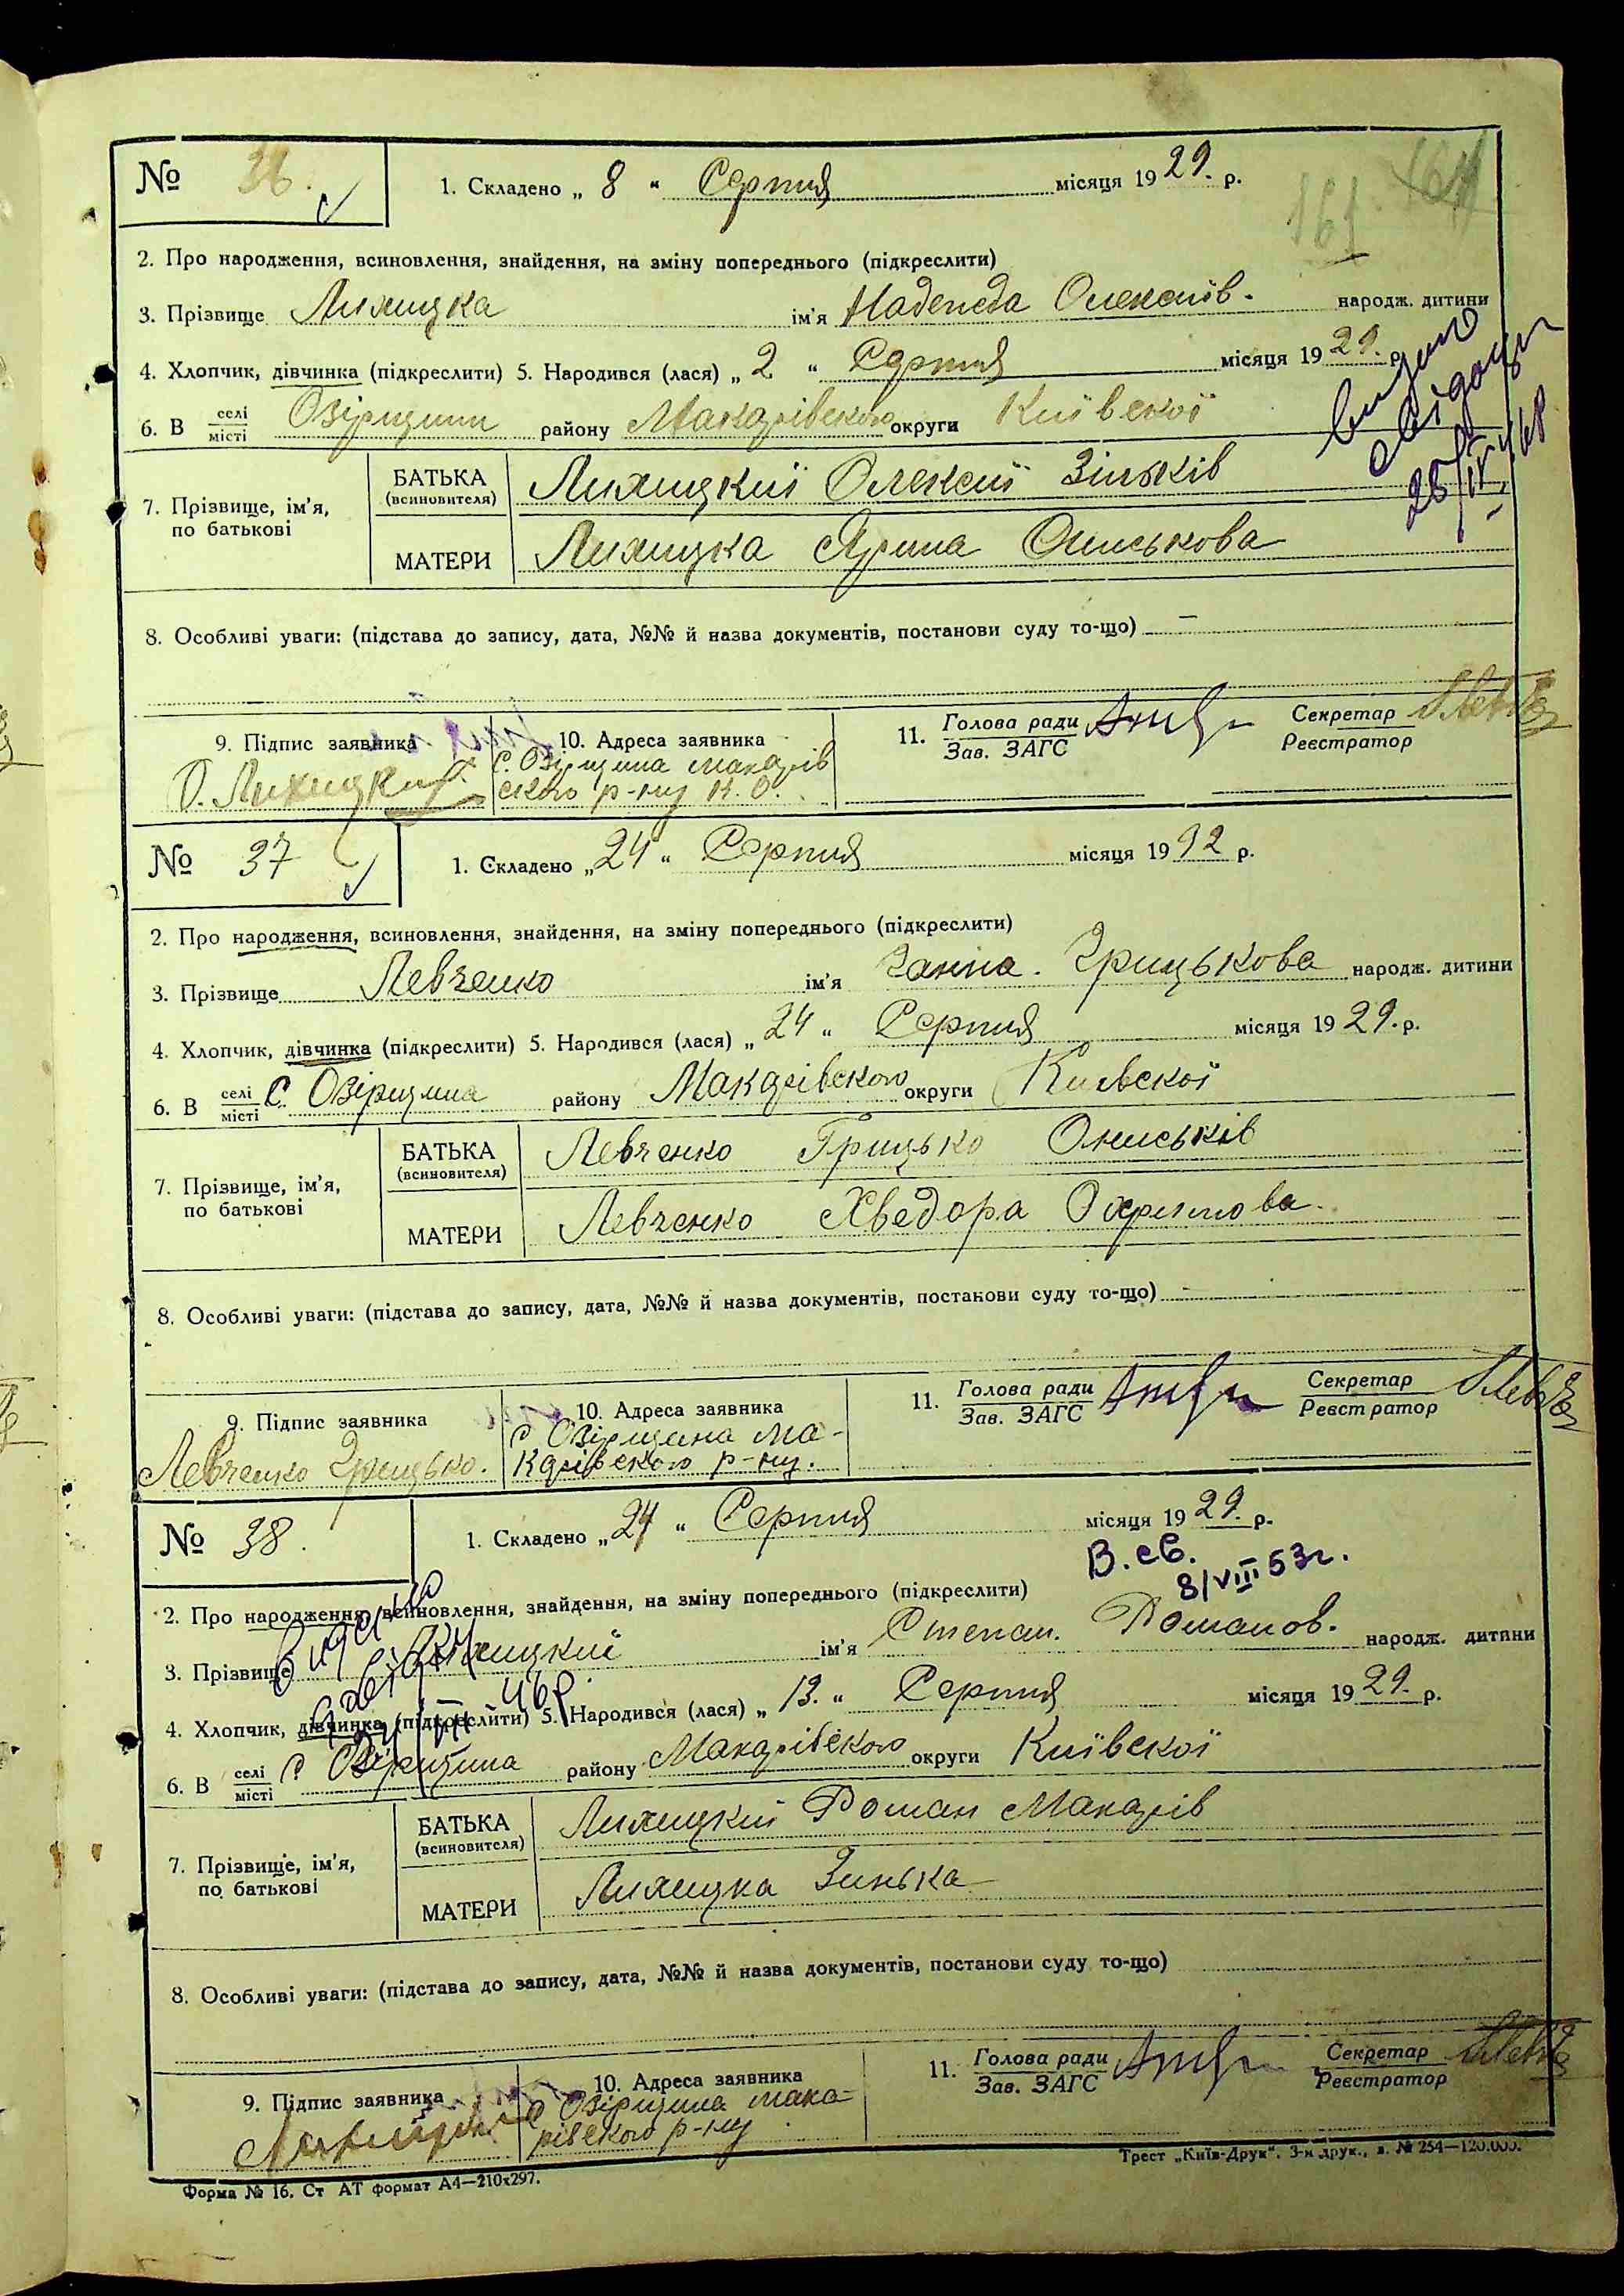 № 36.
1. Складено „ 8 “ Серпня місяця 1929. р.
161
2. Про народження, всиновлення, знайдення, на зміну попереднього (підкреслити)
3. Прізвище Лихицка ім'я Надежда Олексіїв. народж. дитини
4. Хлопчик, дівчинка (підкреслити) 5. Народився (лася) „ 2 “ Серпня місяця 1929. р.
видано
свідоцтв
28/IV 68
6. В селі місті Озірщини району Макарівского округи Київскої
7. Прізвище, ім'я, по батькові
БАТЬКА (всиновителя) Лихицкий Олексій Зіньків
МАТЕРИ Лихицка Ярина Ониськова
8. Особливі уваги: (підстава до запису, дата, №№ й назва документів, постанови суду то-що) —
9. Підпис заявника
О. Лихицкий
10. Адреса заявника
с. Озірщина макарів
ского р-ну К. О.
11. Голова ради Зав. ЗАГС
Секретар Реєстратор
№ 37
1. Складено „ 24 “ Серпня місяця 1992 р.
2. Про народження, всиновлення, знайдення, на зміну попереднього (підкреслити)
3. Прізвище Левченко ім'я Ганна. Грицькова народж. дитини
4. Хлопчик, дівчинка (підкреслити) 5. Народився (лася) „ 24 “ Серпня місяця 1929. р.
6. В селі місті С. Озірщина району Макарівского округи Киевскої
7. Прізвище, ім'я, по батькові
БАТЬКА (всиновителя) Левченко Грицько Ониськів
МАТЕРИ Левченко Хведора Охрімова.
8. Особливі уваги: (підстава до запису, дата, №№ й назва документів, постанови суду то-що) -
9. Підпис заявника
Левченко Грицько.
10. Адреса заявника
с Озірщина Ма-
карівского р-ну.
11. Голова ради Зав. ЗАГС
Секретар Реєстратор
№ 38.
1. Складено „ 24 “ Серпня місяця 1929. р.
В. св.
8/VIII 53г.
2. Про народження, всиновлення, знайдення, на зміну попереднього (підкреслити)
видано
3. Прізвище Лихицкий ім'я Степан. Романов. народж. дитини
4. Хлопчик, дівчинка (підкреслити) 5. Народився (лася) „ 13. “ Серпня місяця 1929. р.
6. В селі місті с Озірщина району Макарівского округи Київскої
7. Прізвище, ім'я, по батькові
БАТЬКА (всиновителя) Лихицкий Роман Макарів
МАТЕРИ Лихицка Зинька
8. Особливі уваги: (підстава до запису, дата, №№ й назва документів, постанови суду то-що)
9. Підпис заявника
10. Адреса заявника
с Озірщина мака-
рівского р-ну
11. Голова ради Зав. ЗАГС
Секретар Реєстратор
Форма № 16. Ст АТ формат А4—210x297.
Трест „Київ-Друк“. 3-я друк., з. № 254—120.000.